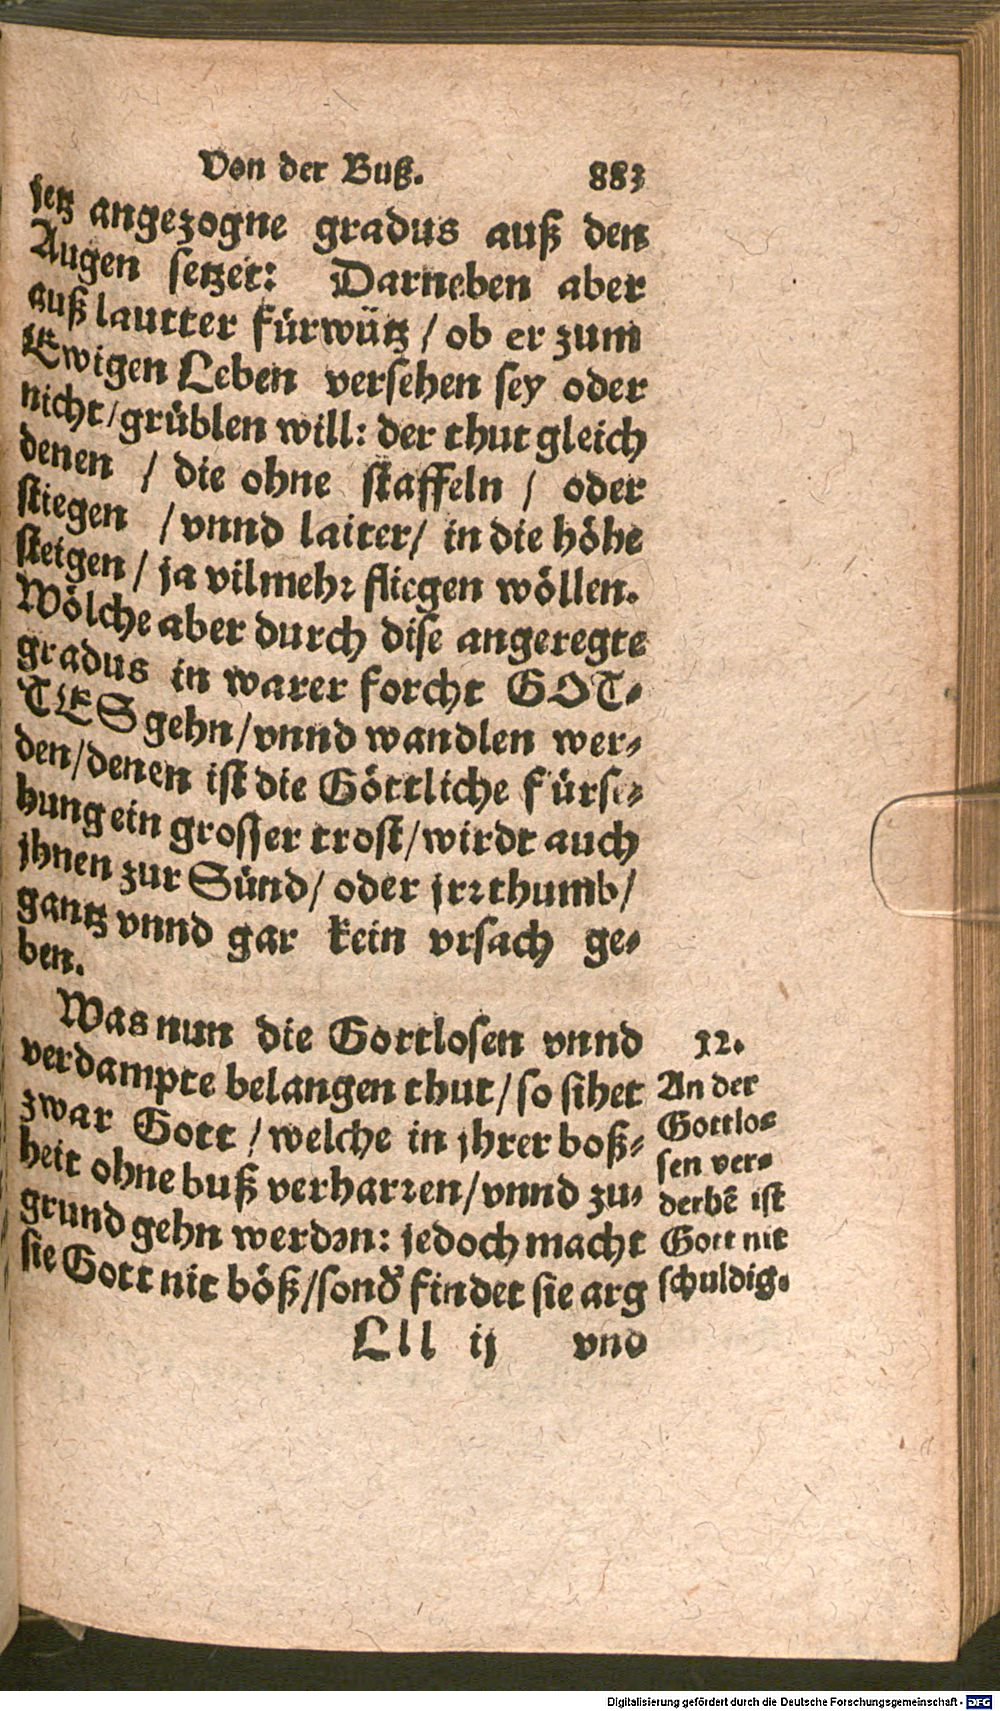 Von der Buß. 883
jetz angezogne gradus auß den
Augen setzet: Darneben aber
auß lautter fürwütz / ob er zum
Ewigen Leben versehen sey oder
nicht / grüblen will: der thut gleich
denen / die ohne staffeln / oder
stiegen / vnnd laiter / in die höhe
steigen / ja vilmehr fliegen wöllen.
Wölche aber durch dise angeregte
gradus in warer forcht GOT-
TES gehn / vnnd wandlen wer-
den / denen ist die Göttliche fürse-
hung ein grosser trost / wirdt auch
jhnen zur Sünd / oder jrrthumb /
gantz vnnd gar kein vrsach ge-
ben.
Was nun die Gottlosen vnnd
verdampte belangen thut / so sihet
zwar Gott / welche in jhrer boß-
heit ohne buß verharren / vnnd zu-
grund gehn werden: jedoch macht
sie Gott nit böß / sonđ findet sie arg
12.
An der
Gottlo-
sen ver-
derbẽ ist
Gott nit
schuldig.
Lll ij vnd
Digitalisierung gefördert durch die Deutsche Forschungsgemeinschaft - DFG